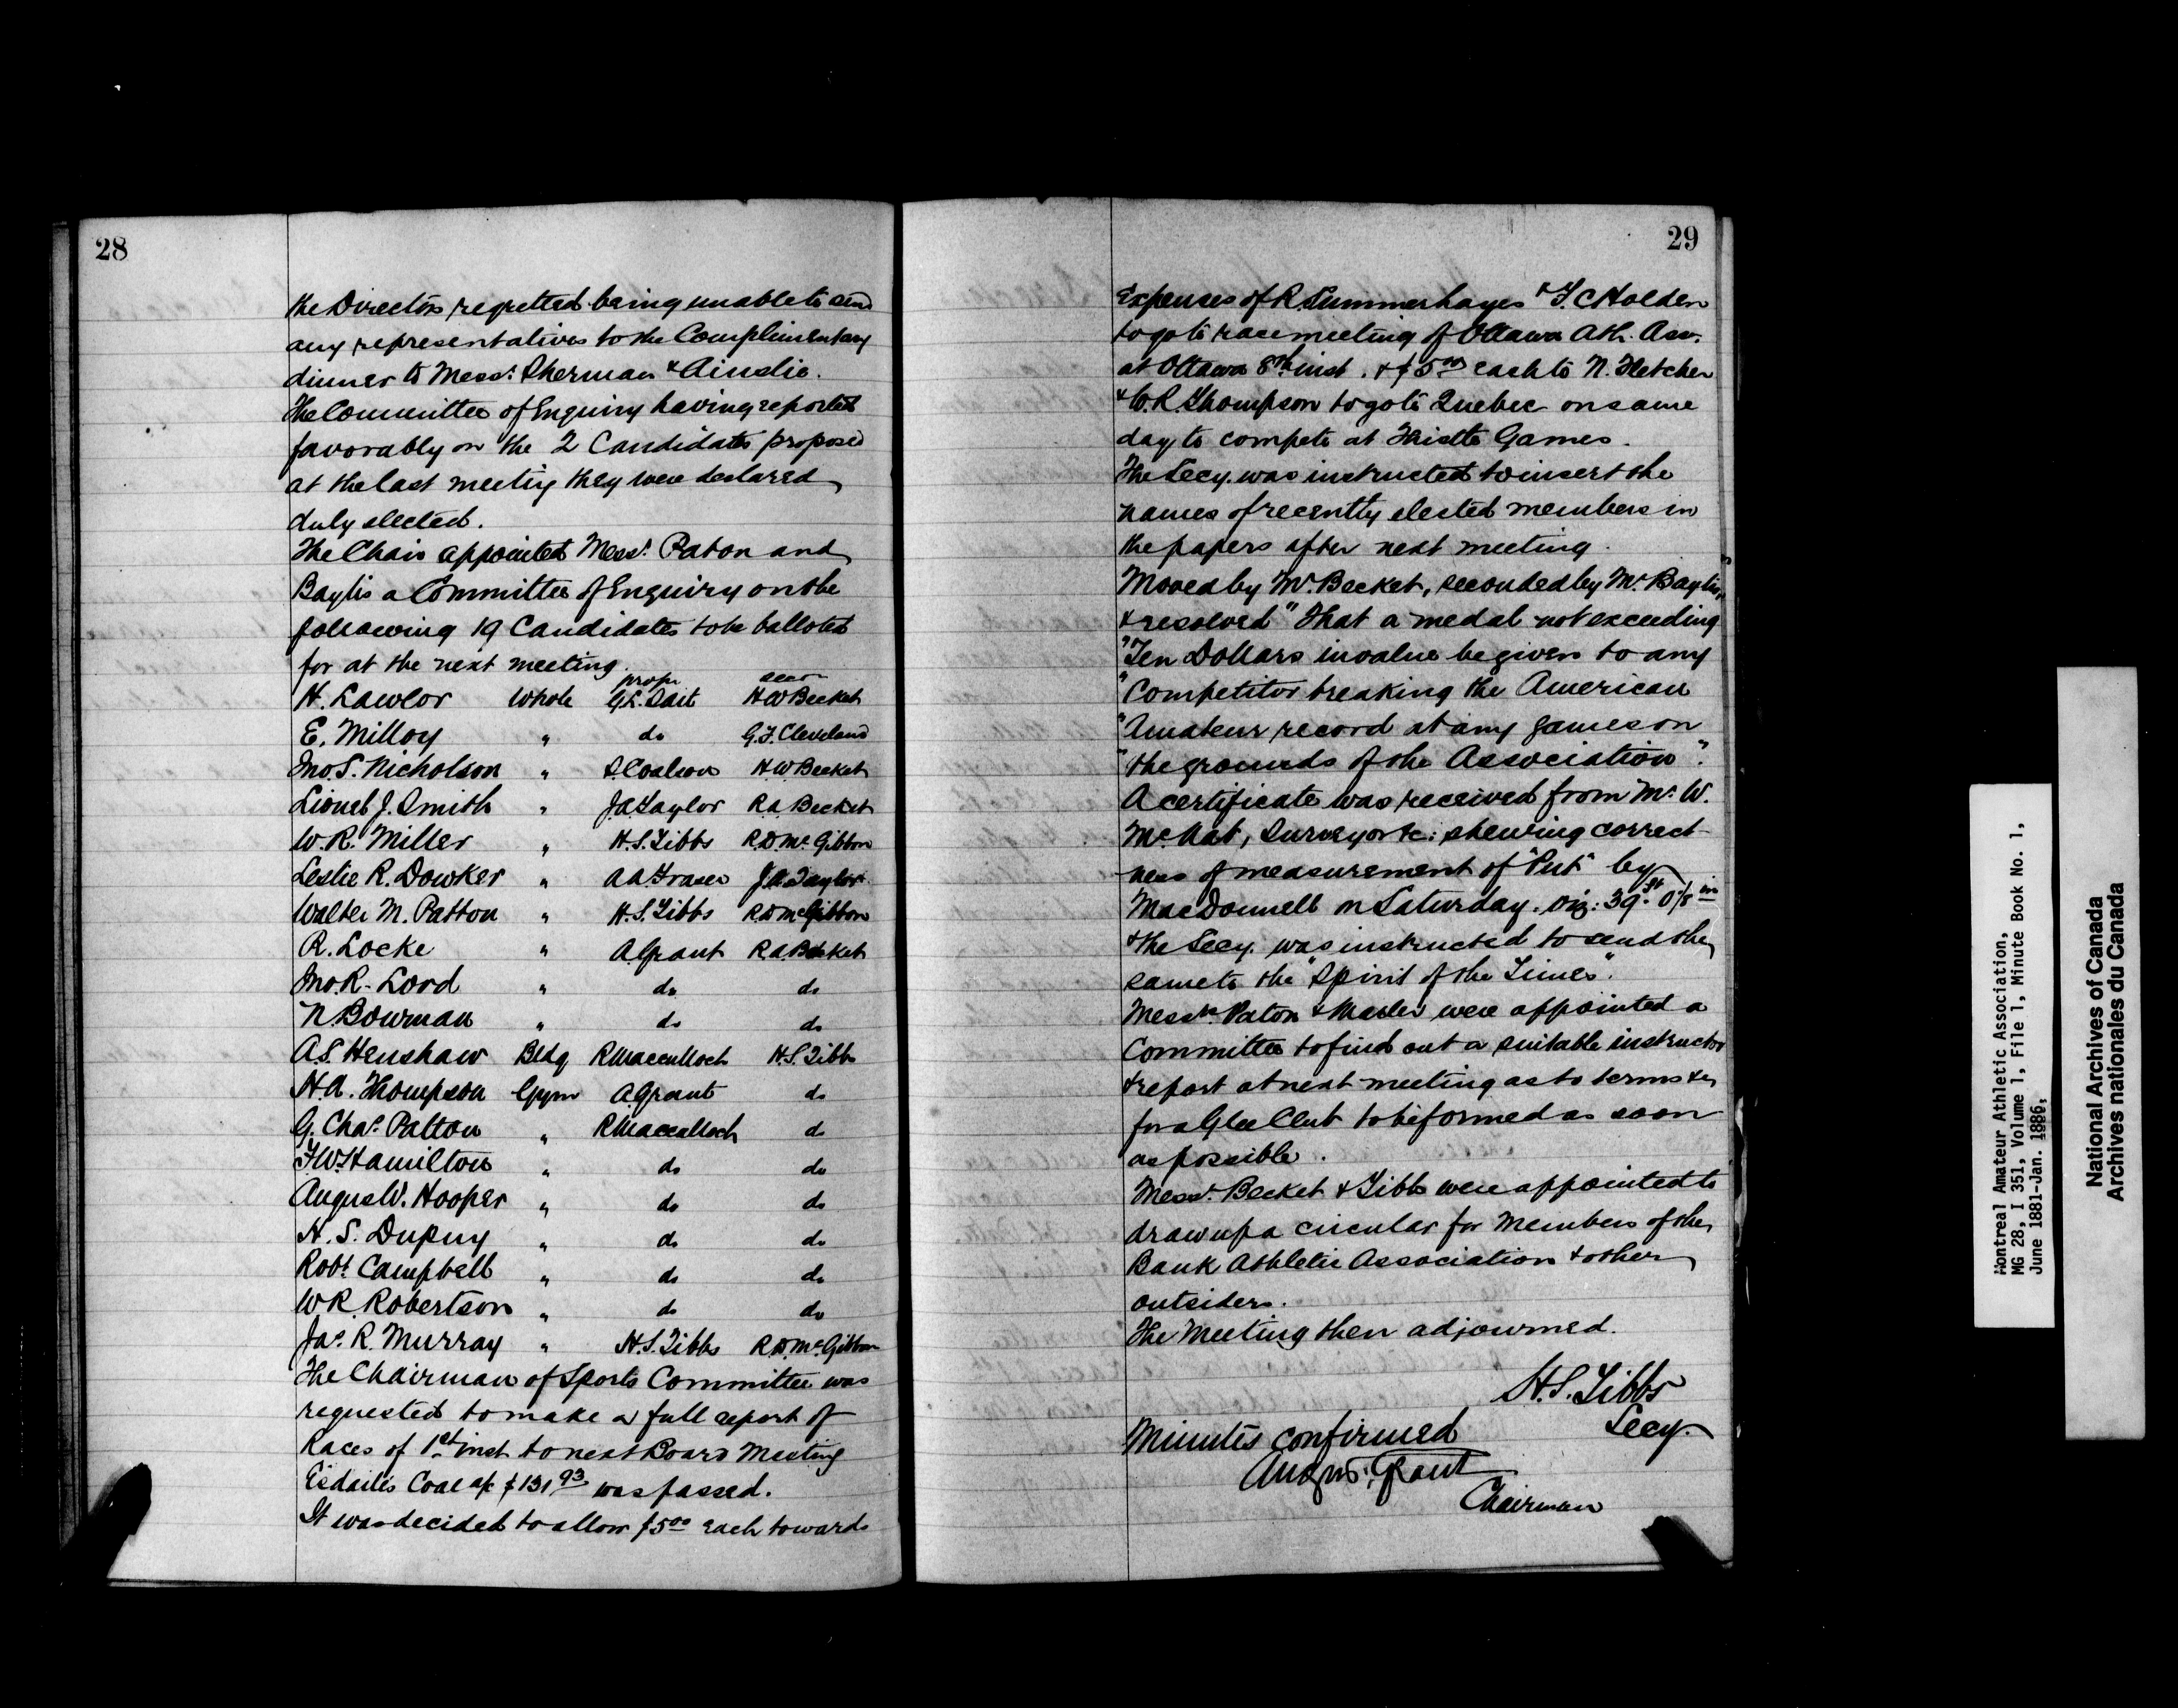 28
the Directors regretted being unable to send
any representatives to the Complimentary
dinner to Messrs. Sherman & Ainslie.
The Committee of Enquiry having reported
favorably on the 2 Candidates proposed
at the last meeting they were declared
duly elected.
The Chair appointed Messrs. Paton and
Baylis a Committee of Enquiry on the
following 19 Candidates to be balloted
for at the next meeting.
prope secon
H. Lawlor Whole G.L. Sait H W Becket
E. Milloy " do G.F. Cleveland
Jno S. Nicholson " S. Coulson H.W Becket
Lionel J. Smith " J.A. Taylor R.A. Becket
W.R. Miller " H.S. Tibbs R.D. McGibbon
Leslie R. Dowker " A A. Fraser J.A. Taylor
Walter M. Patton " H.S. Tibbs R D McGibbon
R. Locke " A. Grant R.A. Becket
Jno. R. Lord " do do
N. Bowman " do do
A S. Henshaw Bldg R Macculloch H.S. Tibbs
H.A. Thompson Gym A. Grant do
G. Chas. Patton " R Macculloch do
F.W. Hamilton " do do
Angus W. Hooper " do do
H. S. Dupuy " do do
Robt. Campbell " do do
W R. Robertson " do do
Jas. R. Murray " H.S. Tibbs R.D. McGibbon
The Chairman of Sports Committee was
requested to make a full report of
Races of 1st inst to next Board Meeting
Esdaile's Coal a/c $131 93 was passed.
It was decided to allow $5 00 each towards
29
Expenses of R. Summerhayes & F. C Holden
to go to race meeting of Ottawa Ath. Assn.
at Ottawa 8th inst. & $5 00 each to N. Fletcher
& W.R. Thompson to go to Quebec on same
day to compete at Games.
The Secy. was instructed to insert the
names of recently elected members in
the papers after next meeting.
Moved by Mr. Becket, seconded by Mr. Baylis,
& resolved "That a medal not exceeding
"Ten Dollars in value be given to any
"Competitor breaking the American
"Amateur record at any games on
"the grounds of the Association".
A certificate was received from Mr. W.
McNab, Surveyor &c: shewing correct-
ness of measurement of "Put" by
MacDonnell on Saturday. viz: 39 ft. 0 1/8 in
& the Secy. was instructed to send the
same to the "Spirit of the Times".
Messrs. Paton & were appointed a
Committee to find out a suitable instructor
& report at next meeting as to terms &c
for a Glee Club to be formed as soon
as possible.
Messrs. Becket & Tibbs were appointed to
draw up a circular for Members of the
Bank Athletic Association & other
outsiders.
The Meeting then adjourned.
H.S. Tibbs
Secy.
Minutes confirmed
Angus Grant
Chairman
Montreal Amateur Athletic Association,
MG 28, I 351, Volume 1, File 1, Minute Book No. 1,
June 1881-Jan. 1886,
National Archives of Canada
Archives nationales du Canada